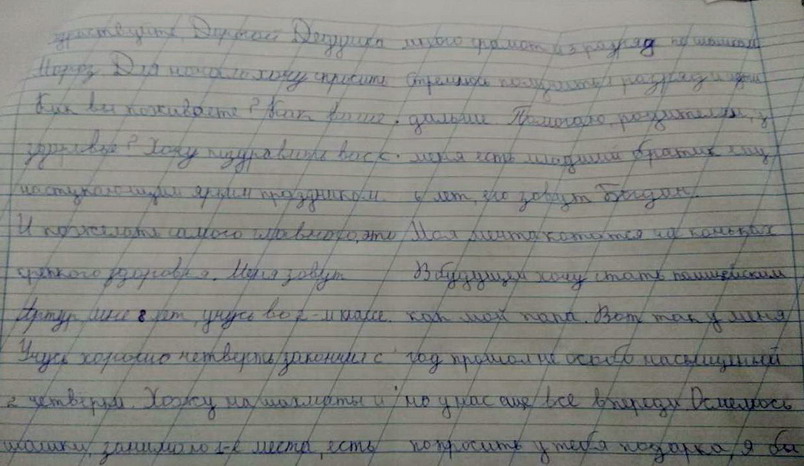 здраствуйте, Дорогой Дедушка
Мороз. Для начала хочу спросить
Как вы поживаете? Как ваше
здоровье? Хочу поздравить вас с
наступающим ярким праздником.
И пожелать самого главного, это
крепкого здоровья. Меня зовут
Артур, мне 8 лет, учусь во 2-м классе.
Учусь хорошо четверть закончил с
2 четвёрки. Хожу на шахматы и
шашки, занимаю 1-е места, есть
много грамот и 3 разряд по шашкам
Стремлюсь получить 1 разряд и идти
дальше. Помогаю родителям, у
меня есть младший братик ему
6 лет, его зовут Богдан.
Моя мечта кататся на коньках
В будущем хочу стать полицейским
как мой папа. Вот так у меня
год прошол не особо насыщенный
но у нас еще все впереди. Осмелюсь
попросить у тебя подарка, я бы